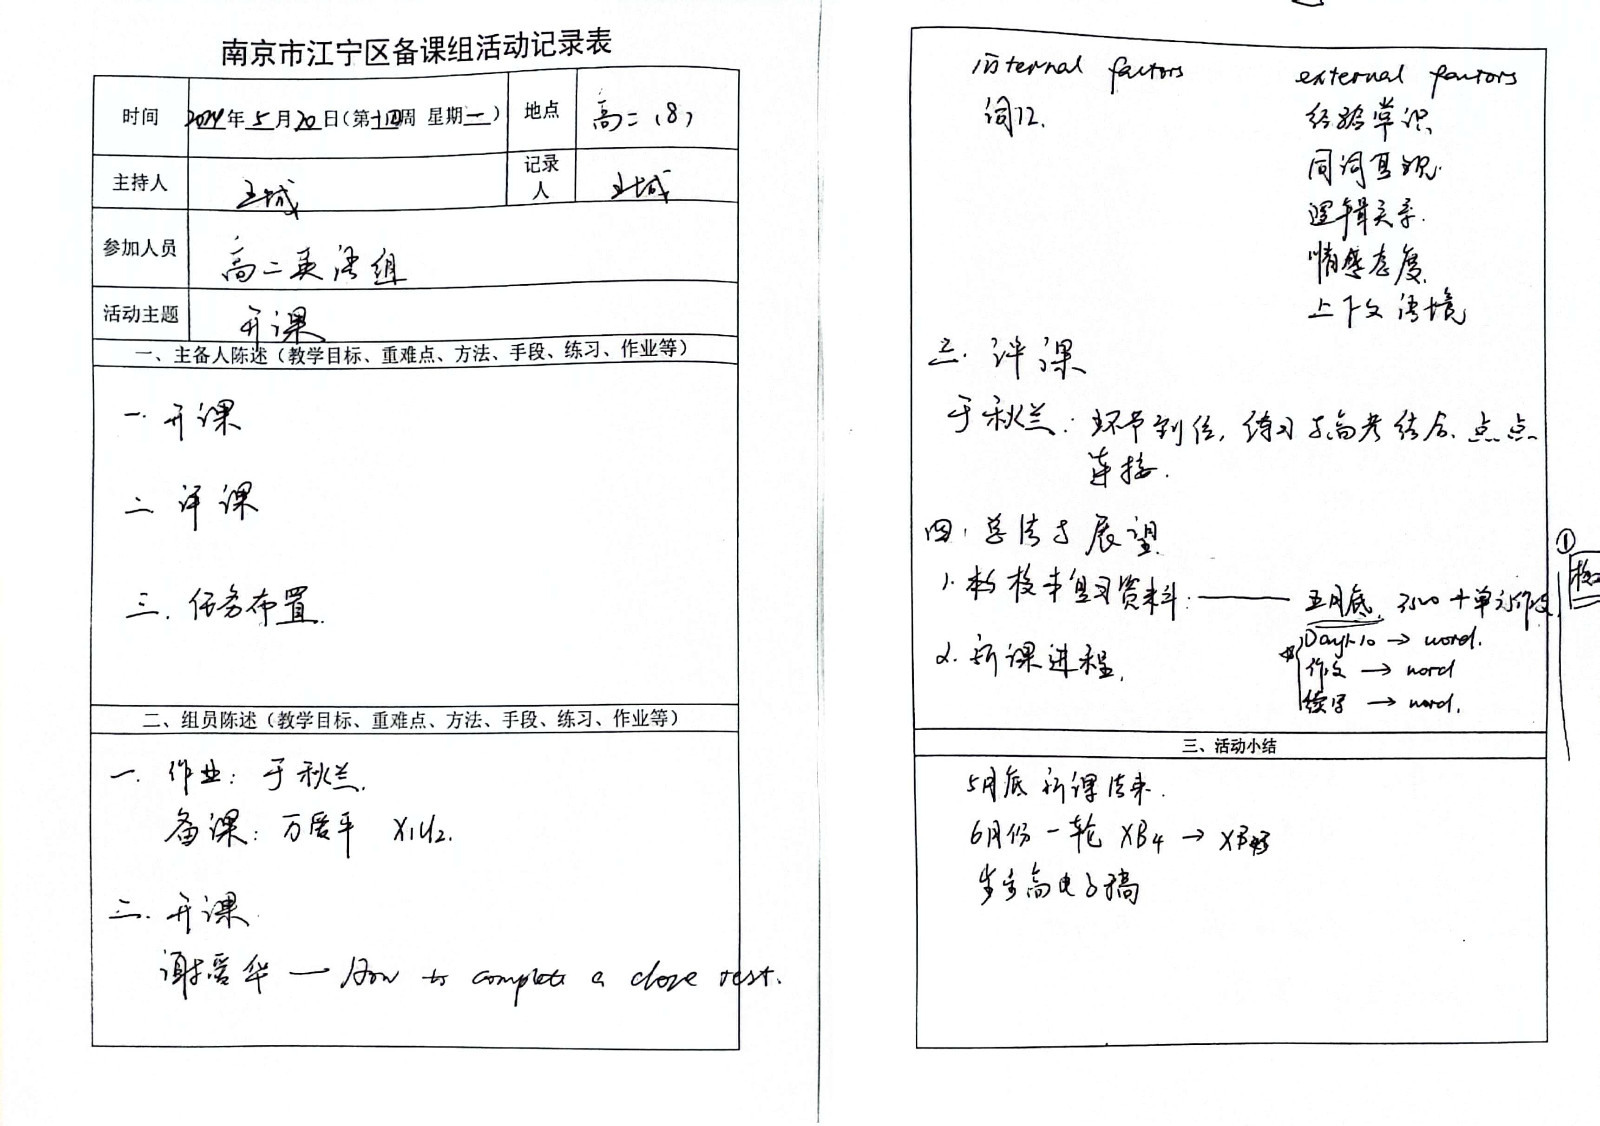 南京市江宁区备课组活动记录表
时间 2024年5月20日(第十四周 星期一) 地点 高二(8)
主持人 王城 记录人 王城
参加人员 高二英语组
活动主题 开课
一、主备人陈述(教学目标、重难点、方法、手段、练习、作业等)
一. 开课
二. 评课
三. 任务布置.
二、组员陈述(教学目标、重难点、方法、手段、练习、作业等)
一. 作业: 于秋兰.
备课: 万爱平 X1U2.
二. 开课
谢爱华 — How to complete a cloze test.
internal factors external factors
词汇. 经验常识
同词复现.
逻辑关系.
情感态度.
上下文语境
三. 评课
于秋兰: 环节到位, 练习与高考结合. 点点
连接.
四. 总结与展望.
1. 校本复习资料: —— 五月底. 3500 + 单元作文.
Day1-10 → word.
2. 新课进程. 作文 → word
续写 → word.
①
三、活动小结
5月底 新课结束.
6月份 一轮 XB4 →
步步高电子稿